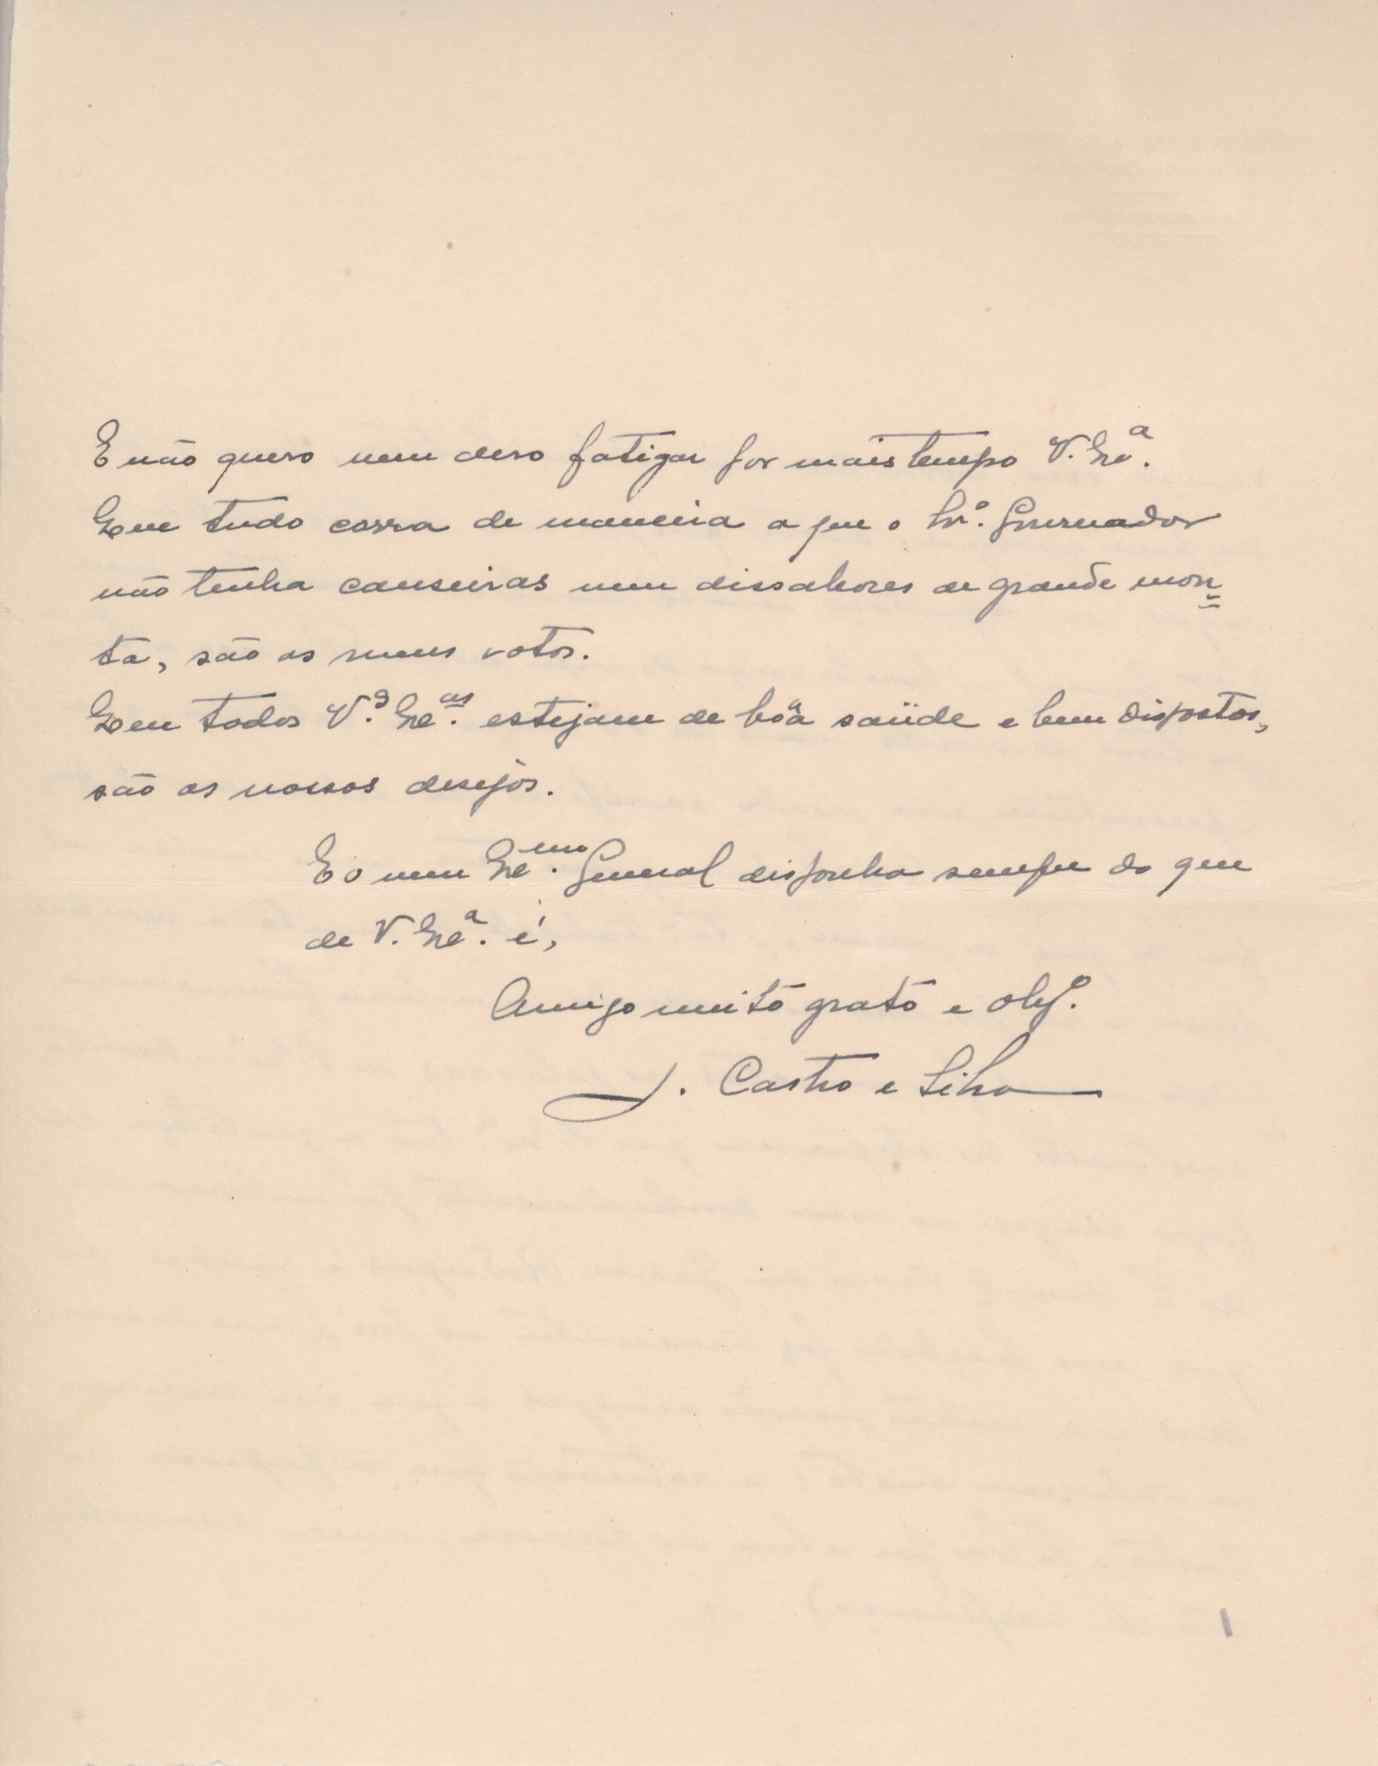 E não quero nem devo fatigar por mais tempo V. Exª.
Que tudo corra de maneira a que o Snr. Governador
não tenha canseiras nem dissabores de grande mon=
ta, são os meus votos.
Que todos V.ªs Exc.as estejam de bôa saüde e bem dispostos,
são os nossos desejos.
E o meu Exc.mo General disponha sempre do que
de V. Excª. é,
Amigo muito grato e obgº.
J. Castro e Silva